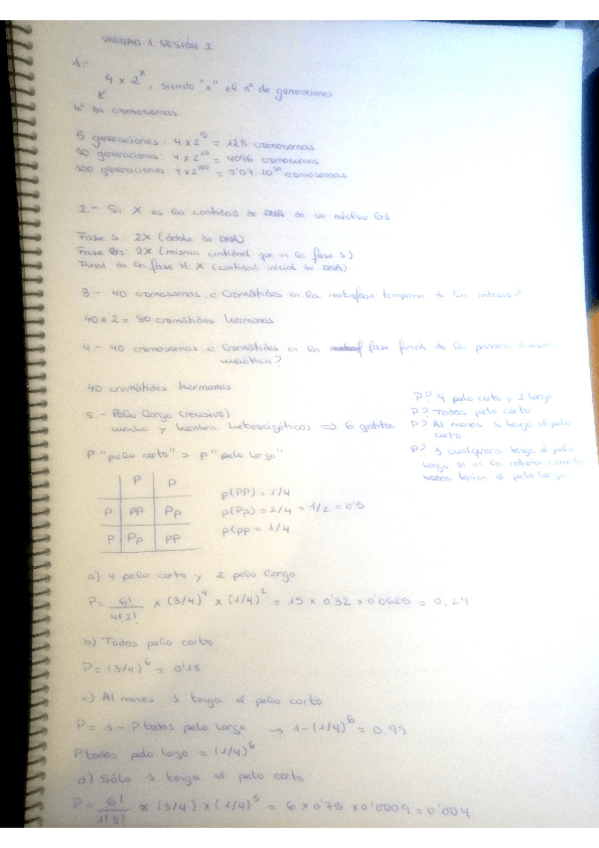 UNIDAD 1. SESIÓN I
1.-
4 x 2^x, siendo "x" el nº de generaciones
nº de cromosomas
5 generaciones: 4 x 2^5 = 128 cromosomas
10 generaciones: 4 x 2^10 = 4096 cromosomas
100 generaciones: 4 x 2^100 = cromosomas
2.- Si X es la cantidad de DNA de un núcleo G1
Fase S: 2X (doble de DNA)
Fase G2: 2X (misma cantidad que en la fase S)
Final de la fase M: X (cantidad inicial de DNA)
3.- 40 cromosomas ¿Cromátides en la metafase temprana de la mitosis?
40 x 2 = 80 cromátides hermanas
4.- 40 cromosomas ¿Cromátides en la fase final de la primera división
meiótica?
40 cromátides hermanas
5.- Pelo largo (recesivo)
macho y hembra heterocigóticos => 6 gatitos
P? 4 pelo corto y 2 largo
P? Todos pelo corto
P? Al menos 1 tenga el pelo
corto
P? 1 cualquiera tenga el pelo
largo si en la
todos tenían el pelo largo
P "pelo corto" > p "pelo largo"
P p
P PP Pp
p Pp pp
p(PP) = 1/4
p(Pp) = 2/4 = 1/2 = 0'5
p(pp = 1/4
a) 4 pelo corto y 2 pelo largo
P = 6!/4!2! x (3/4)^4 x (1/4)^2 = 15 x 0'32 x 0'0625 = 0,29
b) Todos pelo corto
P = (3/4)^6 = 0'18
c) Al menos 1 tenga el pelo corto
P = 1 - P todos pelo largo → 1 - (1/4)^6 = 0.99
P todos pelo largo = (1/4)^6
d) Sólo 1 tenga el pelo corto
P = 6!/1!5! x (3/4) x (1/4)^5 = 6 x 0'75 x 0'0009 = 0'004